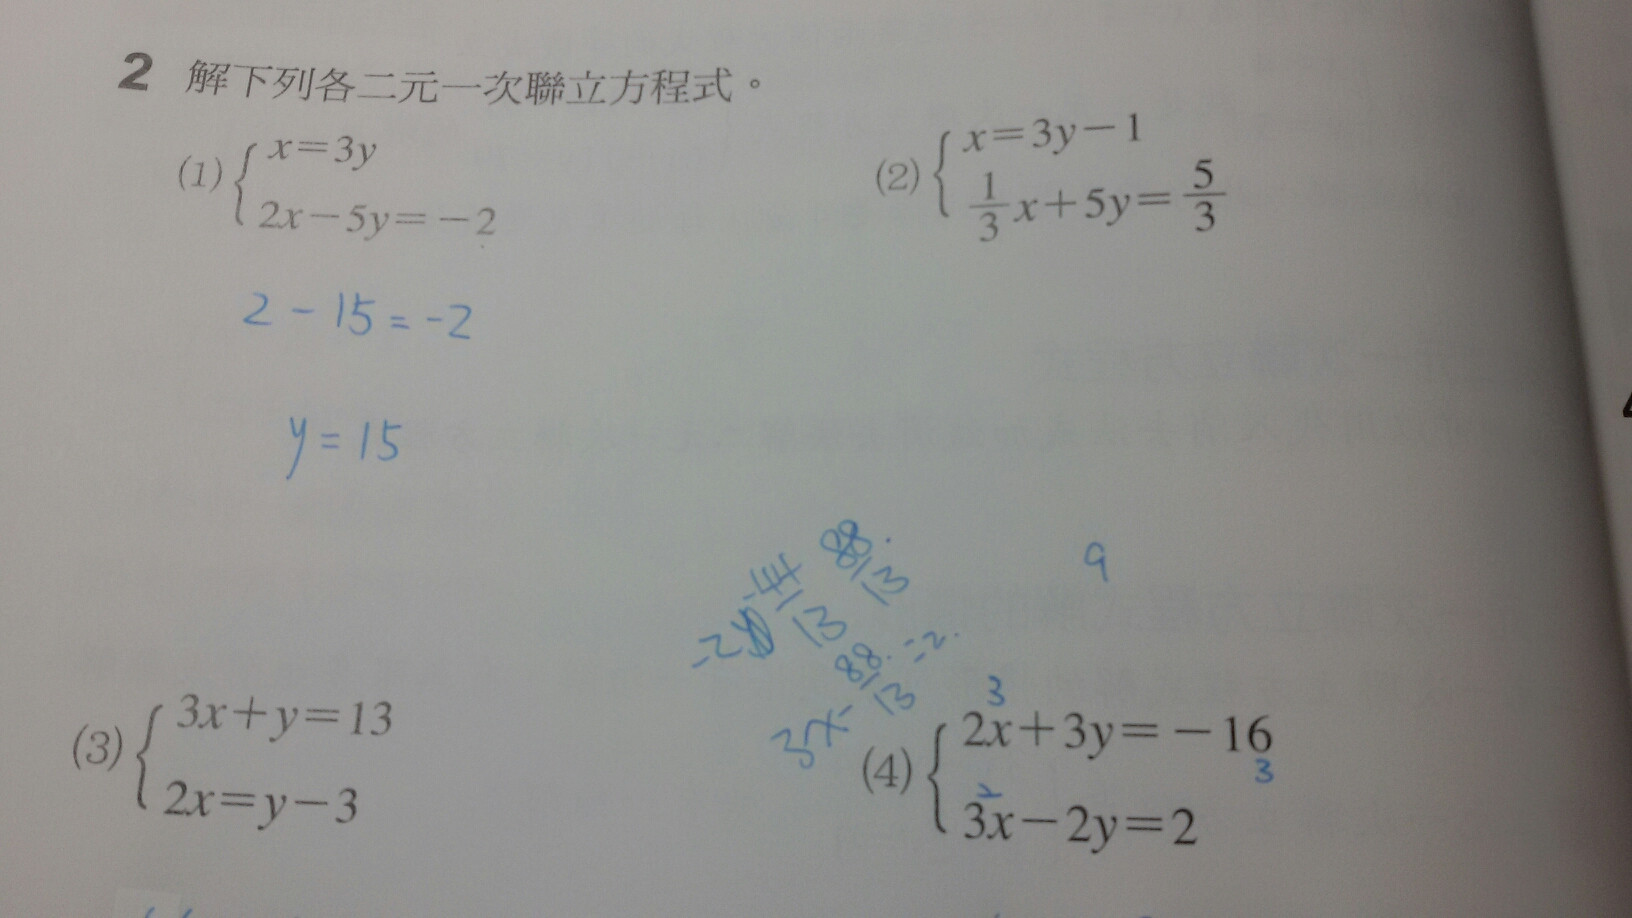 2 解下列各二元一次聯立方程式。
(1) { x=3y
2x-5y=-2
(2) { x=3y-1
1/3 x+5y=5/3
2-15=-2
y=15
88/13
9
-44/13
3x-88/13=2
(3) { 3x+y=13
2x=y-3
3
(4) { 2x+3y=-16
3
2
3x-2y=2